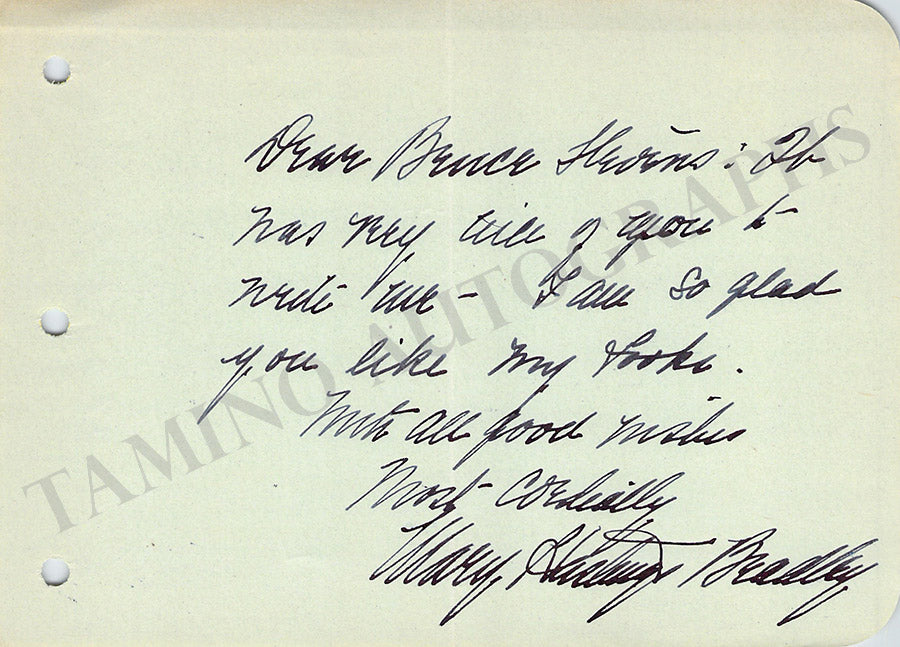 Dear Bruce Stevens: It
was very nice of you to
write me - I am so glad
you like my books.
With all good wishes
Most cordially
Mary Hastings Bradley
TAMINO AUTOGRAPHS